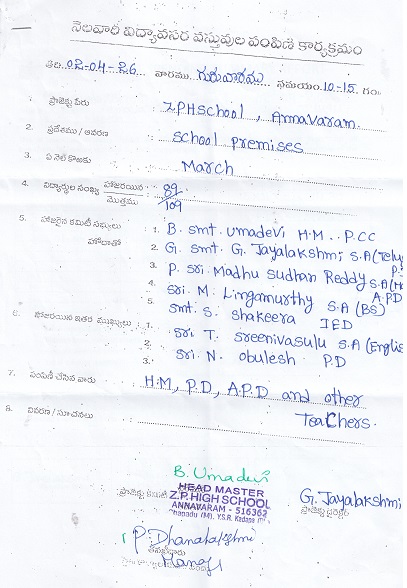 నెలవారీ విద్యావసర వస్తువుల పంపిణీ కార్యక్రమం
తేది. 02-04-26 వారము గురువారము సమయం 10-15 గం.
1. ప్రాజెక్టు పేరు : ZPHSchool, Annavaram.
2. ప్రదేశము / ఆవరణ : School premises
3. ఏ నెల కొఱకు : March
4. విద్యార్థుల సంఖ్య హాజరయిన : 89
మొత్తము : 109
5. హాజరైన కమిటీ సభ్యులు : 1. B. Smt. Umadevi H.M.. P.CC
హోదాతో 2. G. Smt. G. Jayalakshmi S.A (Telu
3. P. Sri. Madhu Sudhan Reddy S.A (
4. Sri. M. Lingamurthy S.A (BS) A.P.D
5. Smt. S. Shakeera IED
6. హాజరయిన ఇతర ముఖ్యులు : 1. Sri. T. Sreenivasulu S.A (Englis
2. Sri. N. Obulesh P.D
3.
7. పంపిణీ చేసిన వారు : H.M, P.D, A.P.D and other
Teachers.
8. వివరణ / సూచనలు :
B. Umadevi
HEAD MASTER
Z.P. HIGH SCHOOL
ANNAVARAM - 516362
Chapadu (M), Y.S.R. Kadapa
G. Jayalakshmi
ప్రాజెక్టు డైరెక్టర్
P. Dhanalakshmi